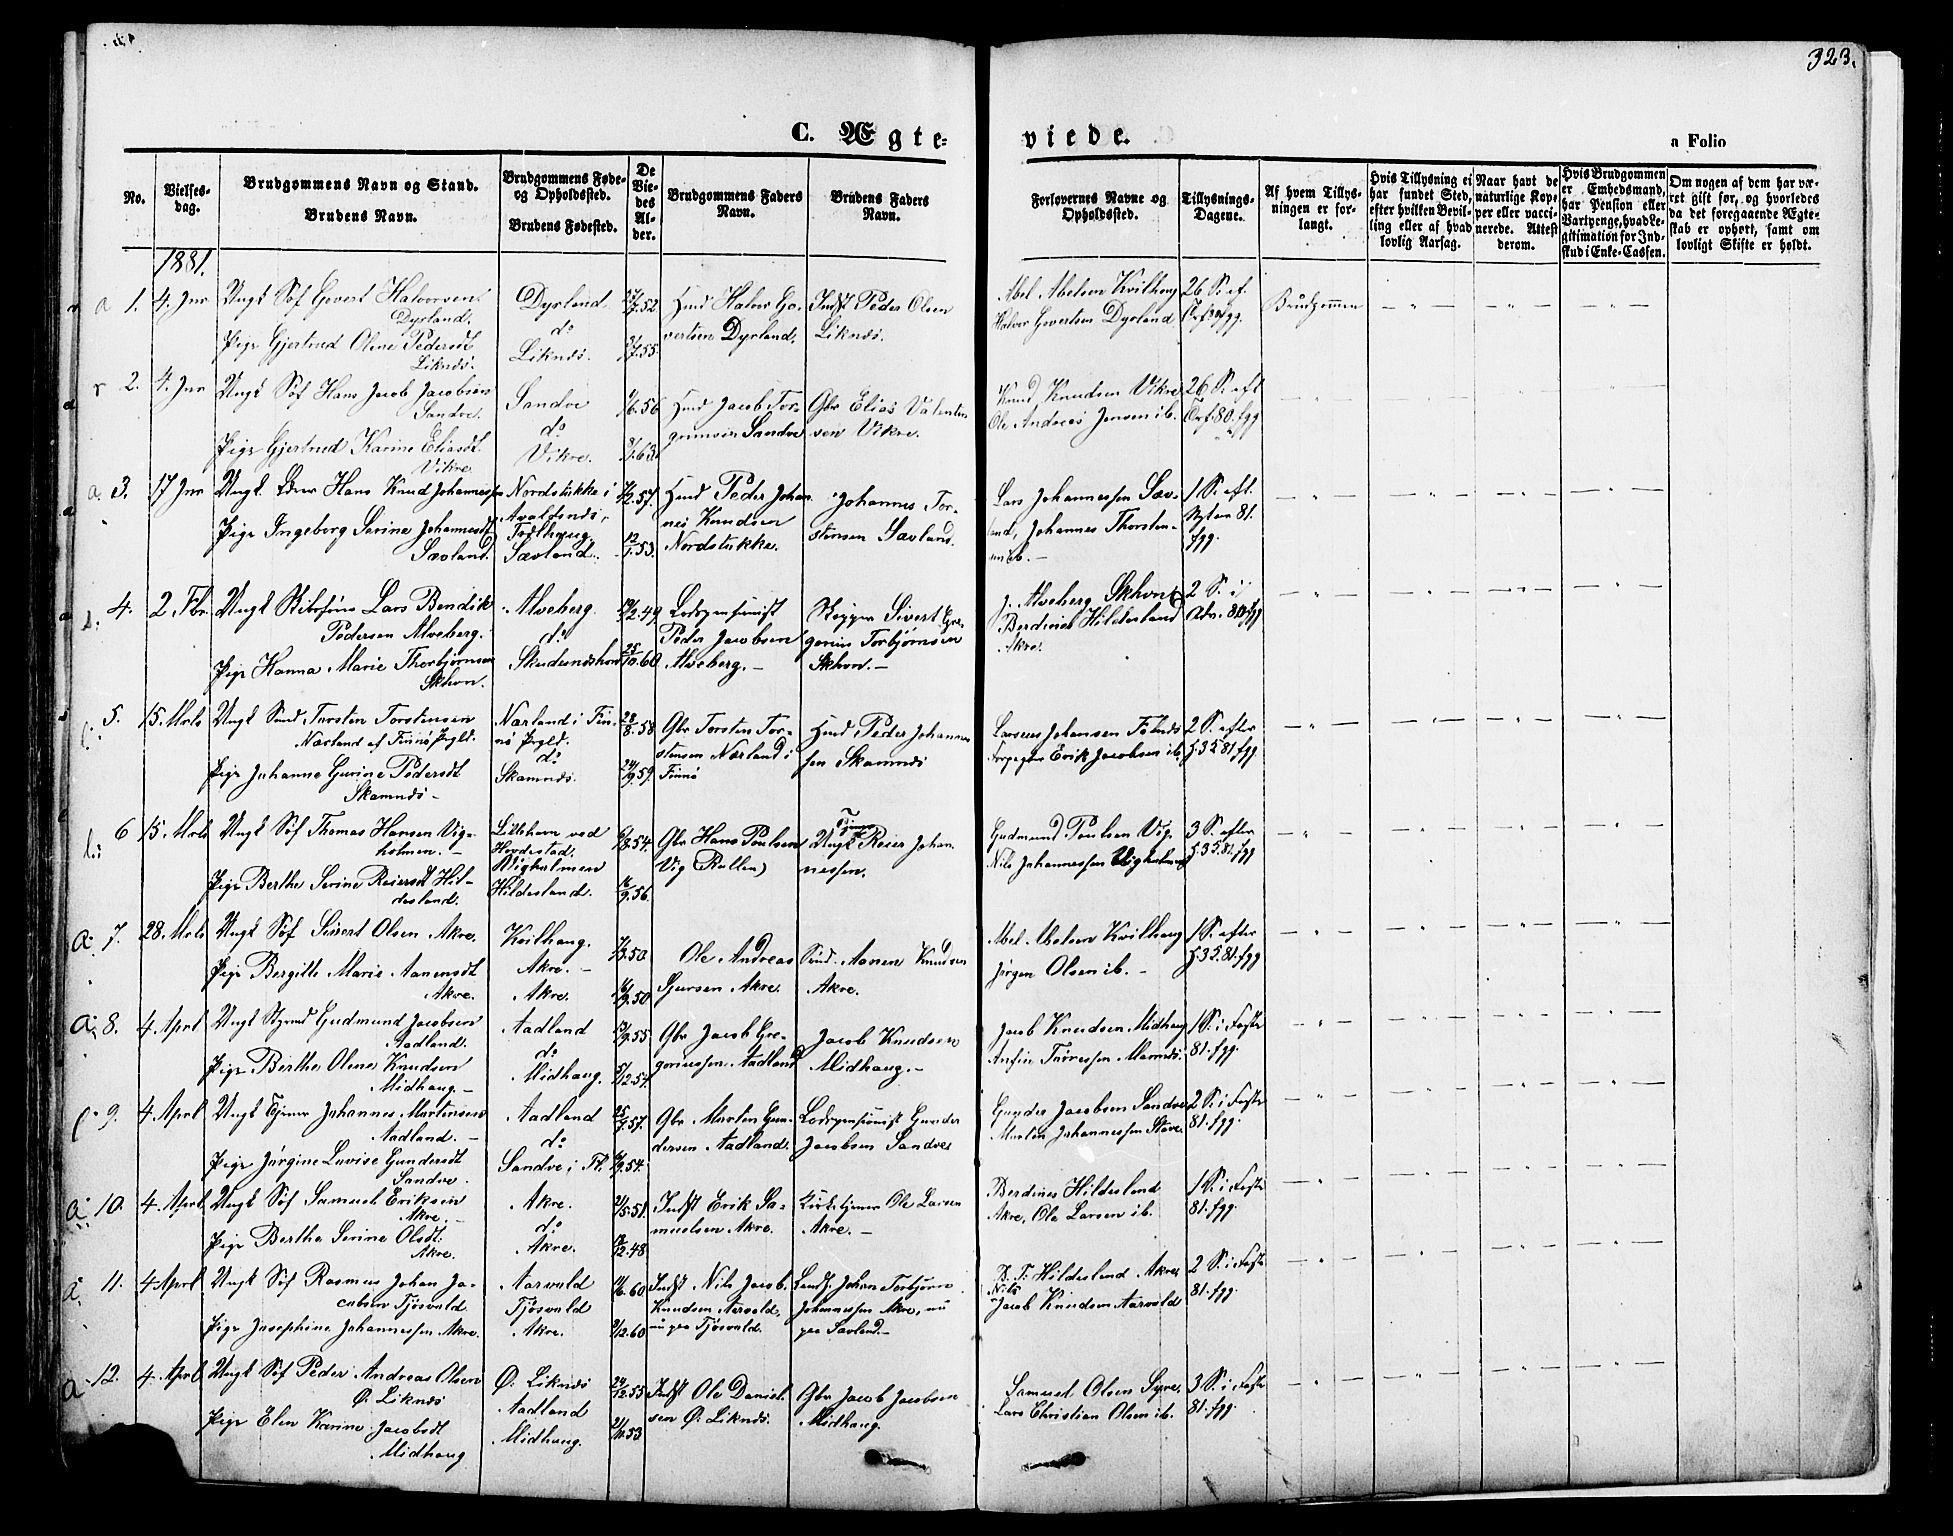 323.
C. Ægte-
viede.
a Folio
No.
Vielses-
dag.
Brudgommens Navn og Stand.
Brudens Navn.
Brudgommens Føde-
og Opholdssted.
Brudens Fødested.
De
Vie-
des
Al-
der.
Brudgommens Faders
Navn.
Brudens Faders
Navn.
Forlovernes Navne og
Opholdssted.
Tillysnings-
Dagene.
Af hvem Tillys-
ningen er for-
langt.
Hvis Tillysning ei
har fundet Sted,
efter hvilken Bevil-
ling eller af hvad
lovlig Aarsag.
Naar havt de
naturlige Kop-
per eller vacci-
nerede. Attest
derom.
Hvis Brudgommen
er Embedsmand,
har Pension eller
Vartpenge, hvad Le-
gitimation for Ind-
skud i Enke-Cassen.
Om nogen af dem har væ-
ret gift før, og hvorledes
da det foregaaende Ægte-
skab er ophørt, samt om
lovligt Skifte er holdt.
1881.
a 1. 4. Jnr Ungk Söf Govert Halvorsen
Dyrland.
Pige Gjertrud Oline Pedersdt
Liknös.
Dyrland
do
Liknös.
Hmd Halvor Go-
vertsen Dyrland.
Indst Peder Olsen
Liknös.
Abel Abelsen Kvilhaug
Halvor Govertsen Dyrland
26 S. ef.
Brudgommen
2. 4. Jnr Ungk Söf Hans Jacob Jacobsen
Sandve.
Pige Gjertrud Karine Eliasdt
Vikre.
Sandve
do
Vikre.
Hmd Jacob Tor-
grimsen Sandve
Gbr Elias Valentin
sen Vikre.
Knud Knudsen Vikre
Ole Andreas Jensen ib.
26 S. eft
80. fgg
a. 3. 17 Jnr Ungk. Hans Knud Johannessen
Pige Ingeborg Serine Johannesdt
Sævland
Nordstukke i
Avaldsnös,
Sævland.
Hmd Peder Johan
nes Knudsen
Nordstukke.
Johannes Tor-
stensen Savland.
Lars Johannessen Sæv-
land, Johannes Thorsten-
sen ib. -
1 S. eft.
Nytaar 81.
fgg.
4. 2 Fbr. Ungk Lars Bendik
Pedersen Alveberg.
Pige Hanna Marie Thorbjørnsen
Skhvn.
Alveberg.
do
Skudeneshavn
Lodspensionist
Peder Jacobsen
Alveberg. -
Sivert Gre-
gorius Torbjørnsen
Skhvn. -
J. Alveberg Skhvn
Berdines Hildesland
Akre.
2 S. i
Adv. 80 fgg
5. 15. Mrts Ungk Smd Torsten Torstensen
Nærland af Finnö Prgld.
Pige Johanne Gurine Pedersdt
Skamnös -
Nærland i Fin-
nö Prgld.
do
Skamnös.
Gbr Torsten Tor-
stensen Nærland i
Finnö
Hmd Peder Johannes
sen Skamnös
Erik Jacobsen ib.
2 S. efter
81. fgg
6 15. Mrts Ungk Söf Thomas Hansen Vig-
holmen. -
Pige Berthe Serine Reiersdt Hil-
desland.
Vigholmen
Hildesland.
Gbr Hans Poulsen
Vig
Ungk Reier Johan
nessen.
Gudmund Poulsen Vig.
Nils Johannessen Vigholmen
3 S. efter
81. fgg
a. 7. 28. Mrts Ungk Söf Sivert Olsen Akre.
Pige Bergitte Marie Aanensdt
Akre.
Kvilhaug.
Akre. -
Akre.
Ole Andreas
Sjursen Akre.
Smd. Aanen Knudsen
Akre.
Abel Abelsen Kvilhaug
Jørgen Olsen ib. -
1 S. efter
81. fgg
a. 8. 4. Aprl Ungk Gudmund Jacobsen
Aadland.
Pige Berthe Oline Knudsen
Midhaug. -
Aadland
do
Midhaug.
Gbr Jacob Gre-
goriussen Aadland
Jacob Knudsen
Midhaug. -
Jacob Knudsen Midhaug
1 S. i Faste
81. fgg.
9. 4. Aprl Ungk Johannes Mortensen
Aadland. -
Pige Jörgine Lovise Gundersdt
Sandve.
Aadland
do
Sandve
Gbr Morten Gun-
dersen Aadland.
Lodspensionist Gunder
Jacobsen Sandve
Gunder Jacobsen Sandve
Morten Johannessen Stave.
2 S. i Faste
81. fgg.
a 10. 4. Aprl Ungk Söf Samuel Eriksen
Akre. -
Pige Berthe Serine Olsdt.
Akre.
Akre.
do
Akre.
Indst Erik Sa-
muelsen Akre.
Kirketjener Ole Larsen
Akre. -
Berdines Hildesland
Akre, Ole Larsen ib.
1 S. i Faste
81. fgg.
a. 11. 4. Aprl Ungk Söf Rasmus Johan Ja-
cobsen Tjösvold
Pige Josephine Johannessen Akre.
Aarvold
Tjösvold
Akre.
Indst Nils Jacob
Knudsen Aarvold,
nu paa Tjösvold.
Johan Torbjørn
Johannessen Akre, nu
paa Savland. -
B. T. Hildesland Akre
Nils
Jacob Knudsen Aarvold
2 S. i Faste
81. fgg.
a 12. 4. Aprl Ungk Söf Peder Andreas Olsen
Ö. Liknös
Pige Elen Karine Jacobsdt
Midhaug
Ö. Liknös
Aadland
Midhaug.
Indst Ole Daniel-
sen Ö. Liknös.
Gbr Jacob Jacobsen
Midhaug.
Samuel Olsen Syre.
Lars Christian Olsen ib.
3 S. i Faste
81. fgg.